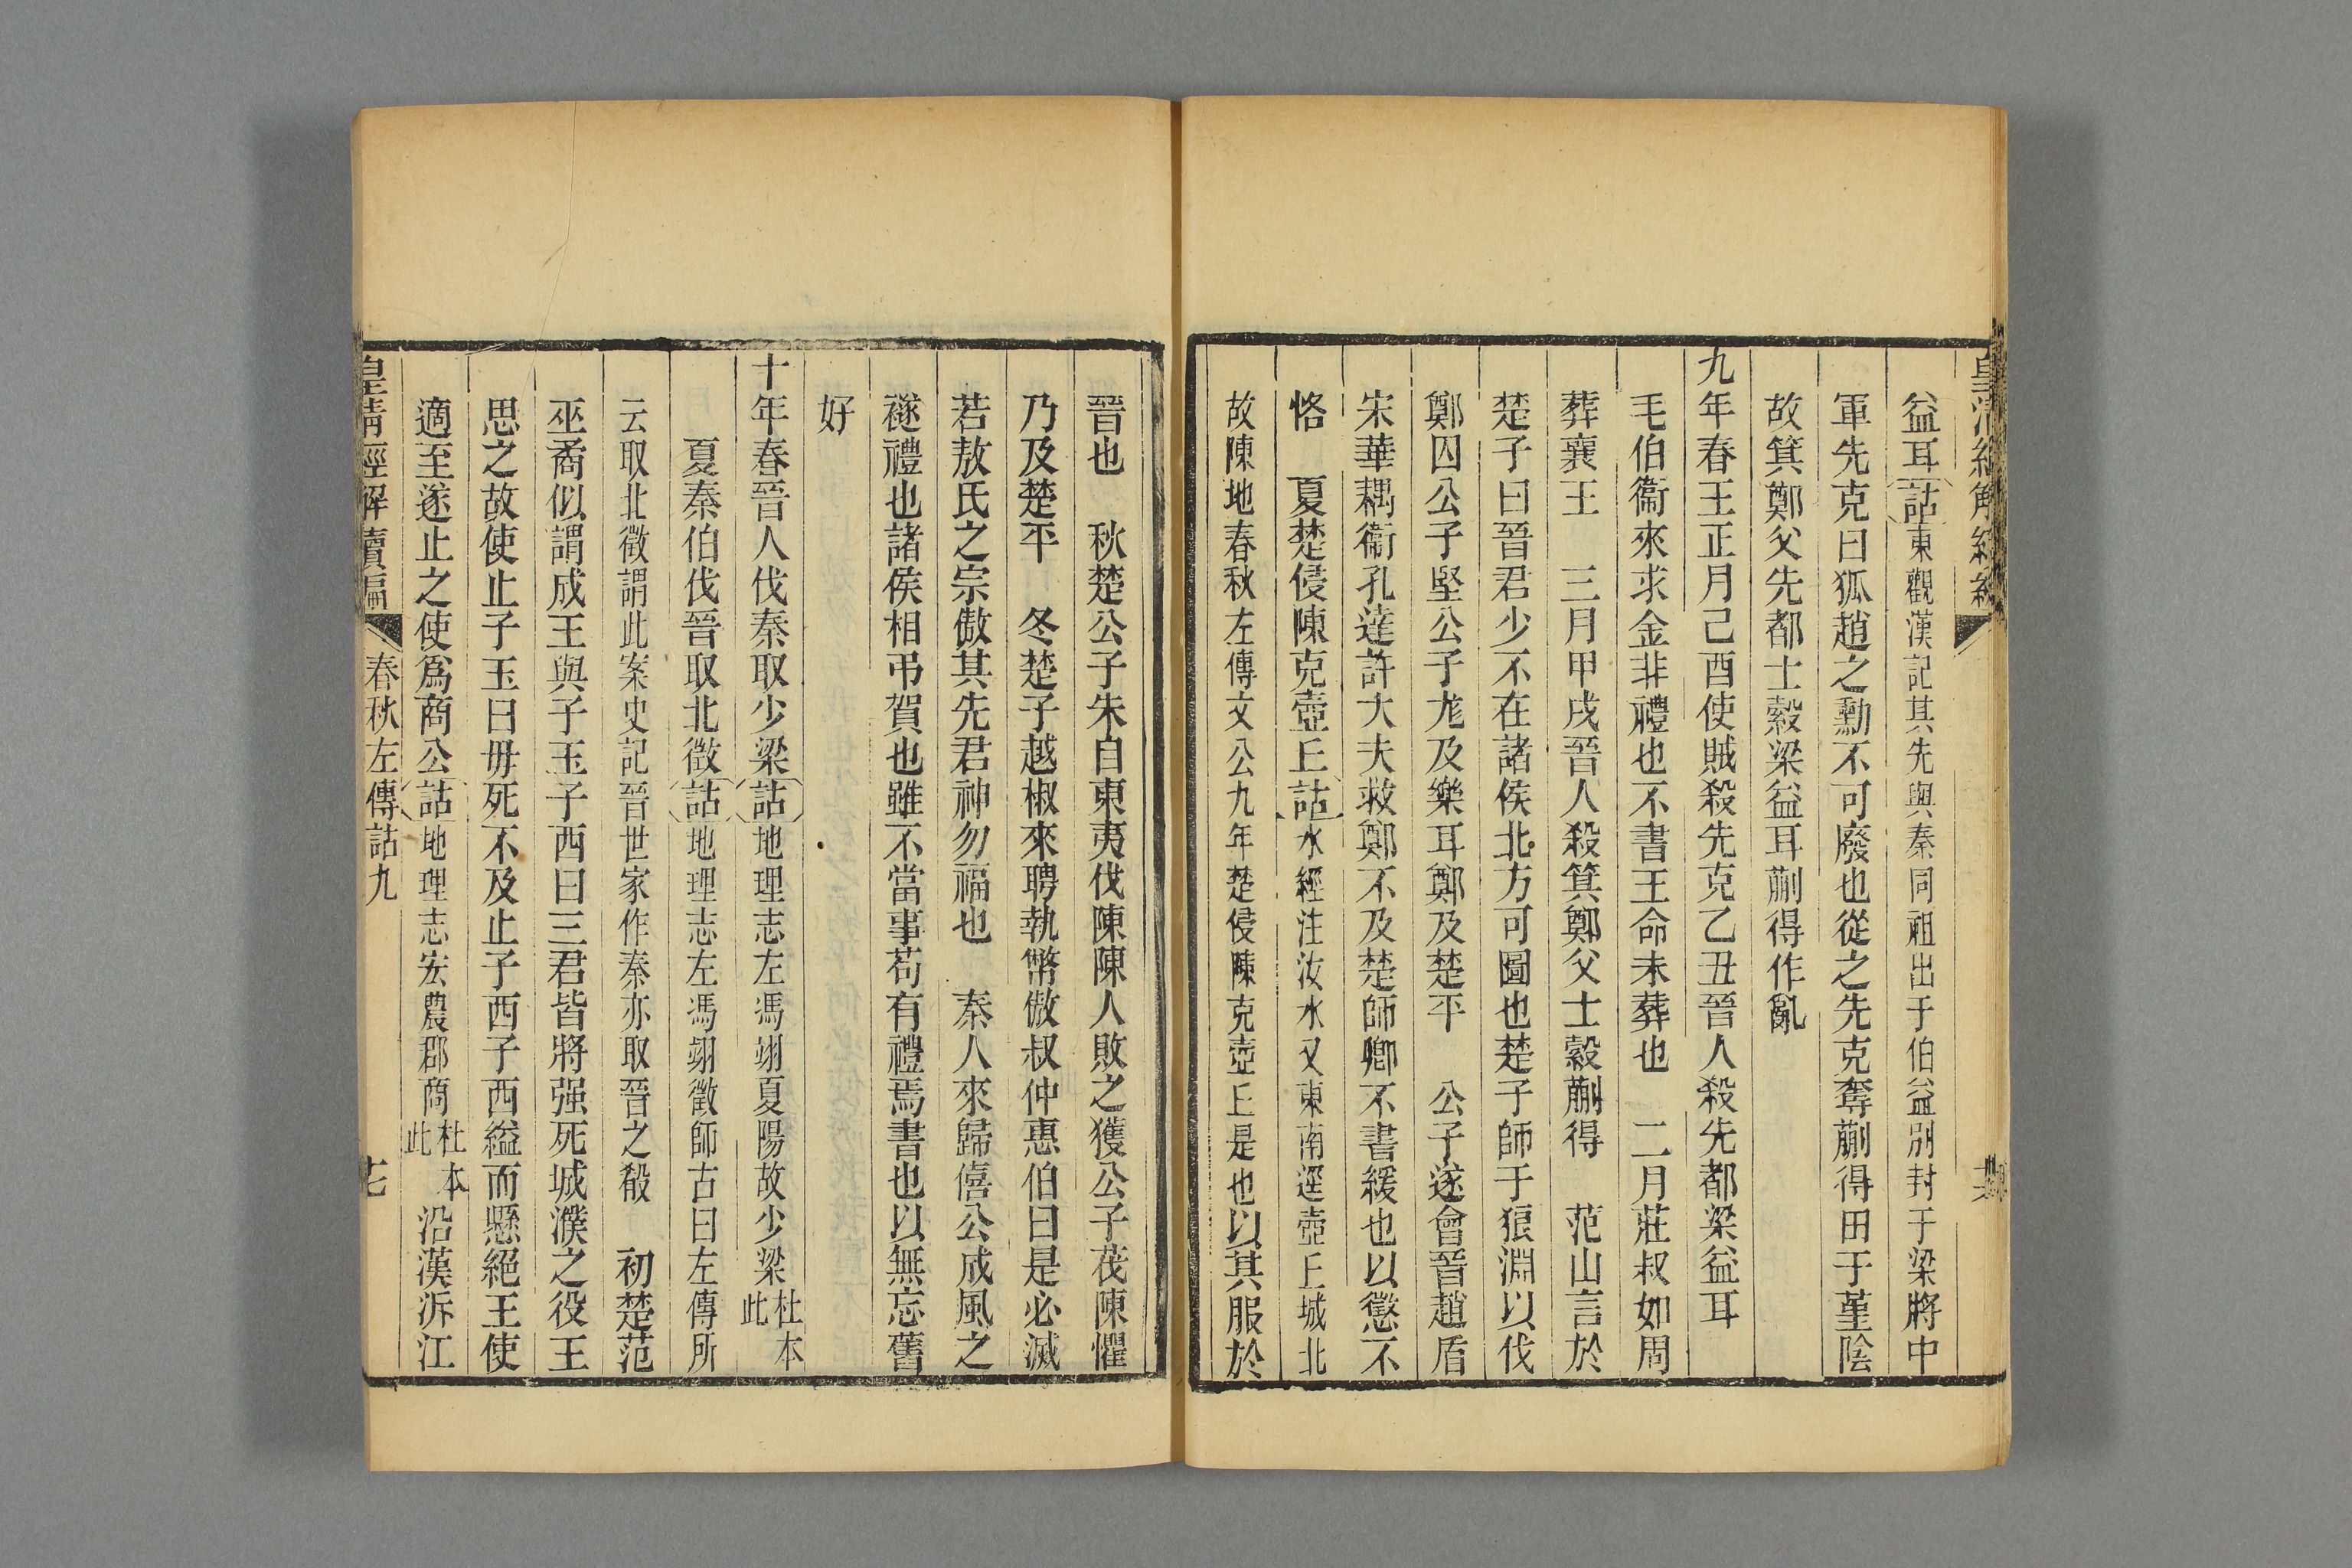 皇清經解續編
益耳詁東觀漢記其先與秦同祖出于伯益別封于梁將中
軍先克曰狐趙之勳不可廢也從之先克奪蒯得田于堇陰
故箕鄭父先都士縠梁益耳蒯得作亂
九年春王正月己酉使賊殺先克乙丑晉人殺先都梁益耳
毛伯衞來求金非禮也不書王命未葬也　二月莊叔如周
葬襄王　三月甲戌晉人殺箕鄭父士縠蒯得　范山言於
楚子曰晉君少不在諸侯北方可圖也楚子師于狼淵以伐
鄭囚公子堅公子尨及樂耳鄭及楚平　公子遂會晉趙盾
宋華耦衞孔達許大夫救鄭不及楚師卿不書緩也以懲不
恪　夏楚侵陳克壺𠀉詁水經注汝水又東南逕壺𠀉城北
故陳地春秋左傳文公九年楚侵陳克壺𠀉是也以其服於
晉也　秋楚公子朱自東夷伐陳陳人敗之獲公子茷陳懼
乃及楚平　冬楚子越椒來聘執幣傲叔仲惠伯曰是必滅
若敖氏之宗傲其先君神勿福也　秦人來歸僖公成風之
襚禮也諸侯相弔賀也雖不當事苟有禮焉書也以無忘舊
好
十年春晉人伐秦取少梁詁地理志左馮翊夏陽故少梁杜本此
夏秦伯伐晉取北徵詁地理志左馮翊徵師古曰左傳所
云取北徵謂此案史記晉世家作秦亦取晉之殽　初楚范
巫矞似謂成王與子玉子西曰三君皆將强死城濮之役王
思之故使止子玉曰毋死不及止子西子西縊而懸絕王使
適至遂止之使爲商公詁地理志宏農郡商杜本此沿漢泝江
皇清經解續編　春秋左傳詁九